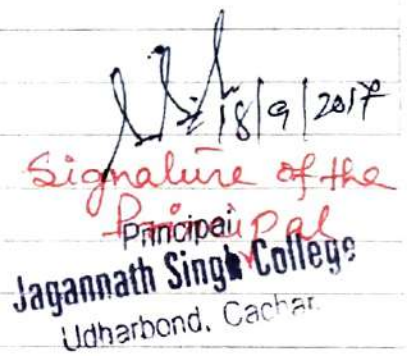 18/9/2017
Signature of the
Principal
Principal
Jagannath Singh College
Udharbond, Cachar.